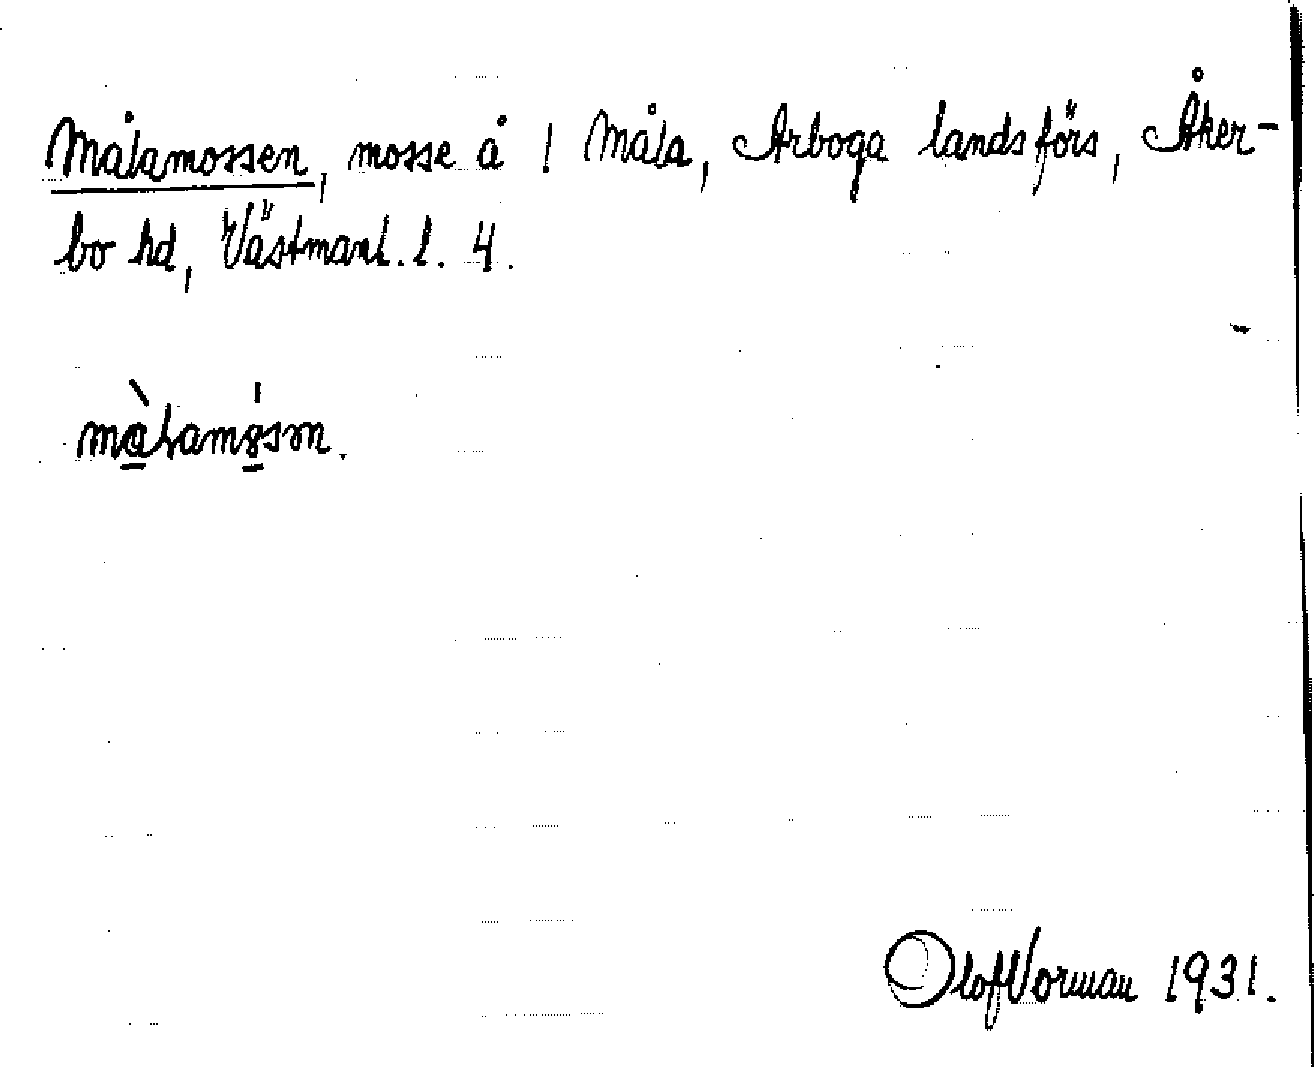 Målamossen, mosse å 1 Måla, Arboga landsförs, Åker-
bo hd, Västmanl. l. 4.
må̀lamå̀sm.
Olof Norman 1931.